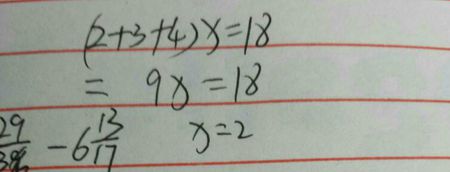 (2+3+4)x=18
= 9x=18
- 6 13/17 x=2